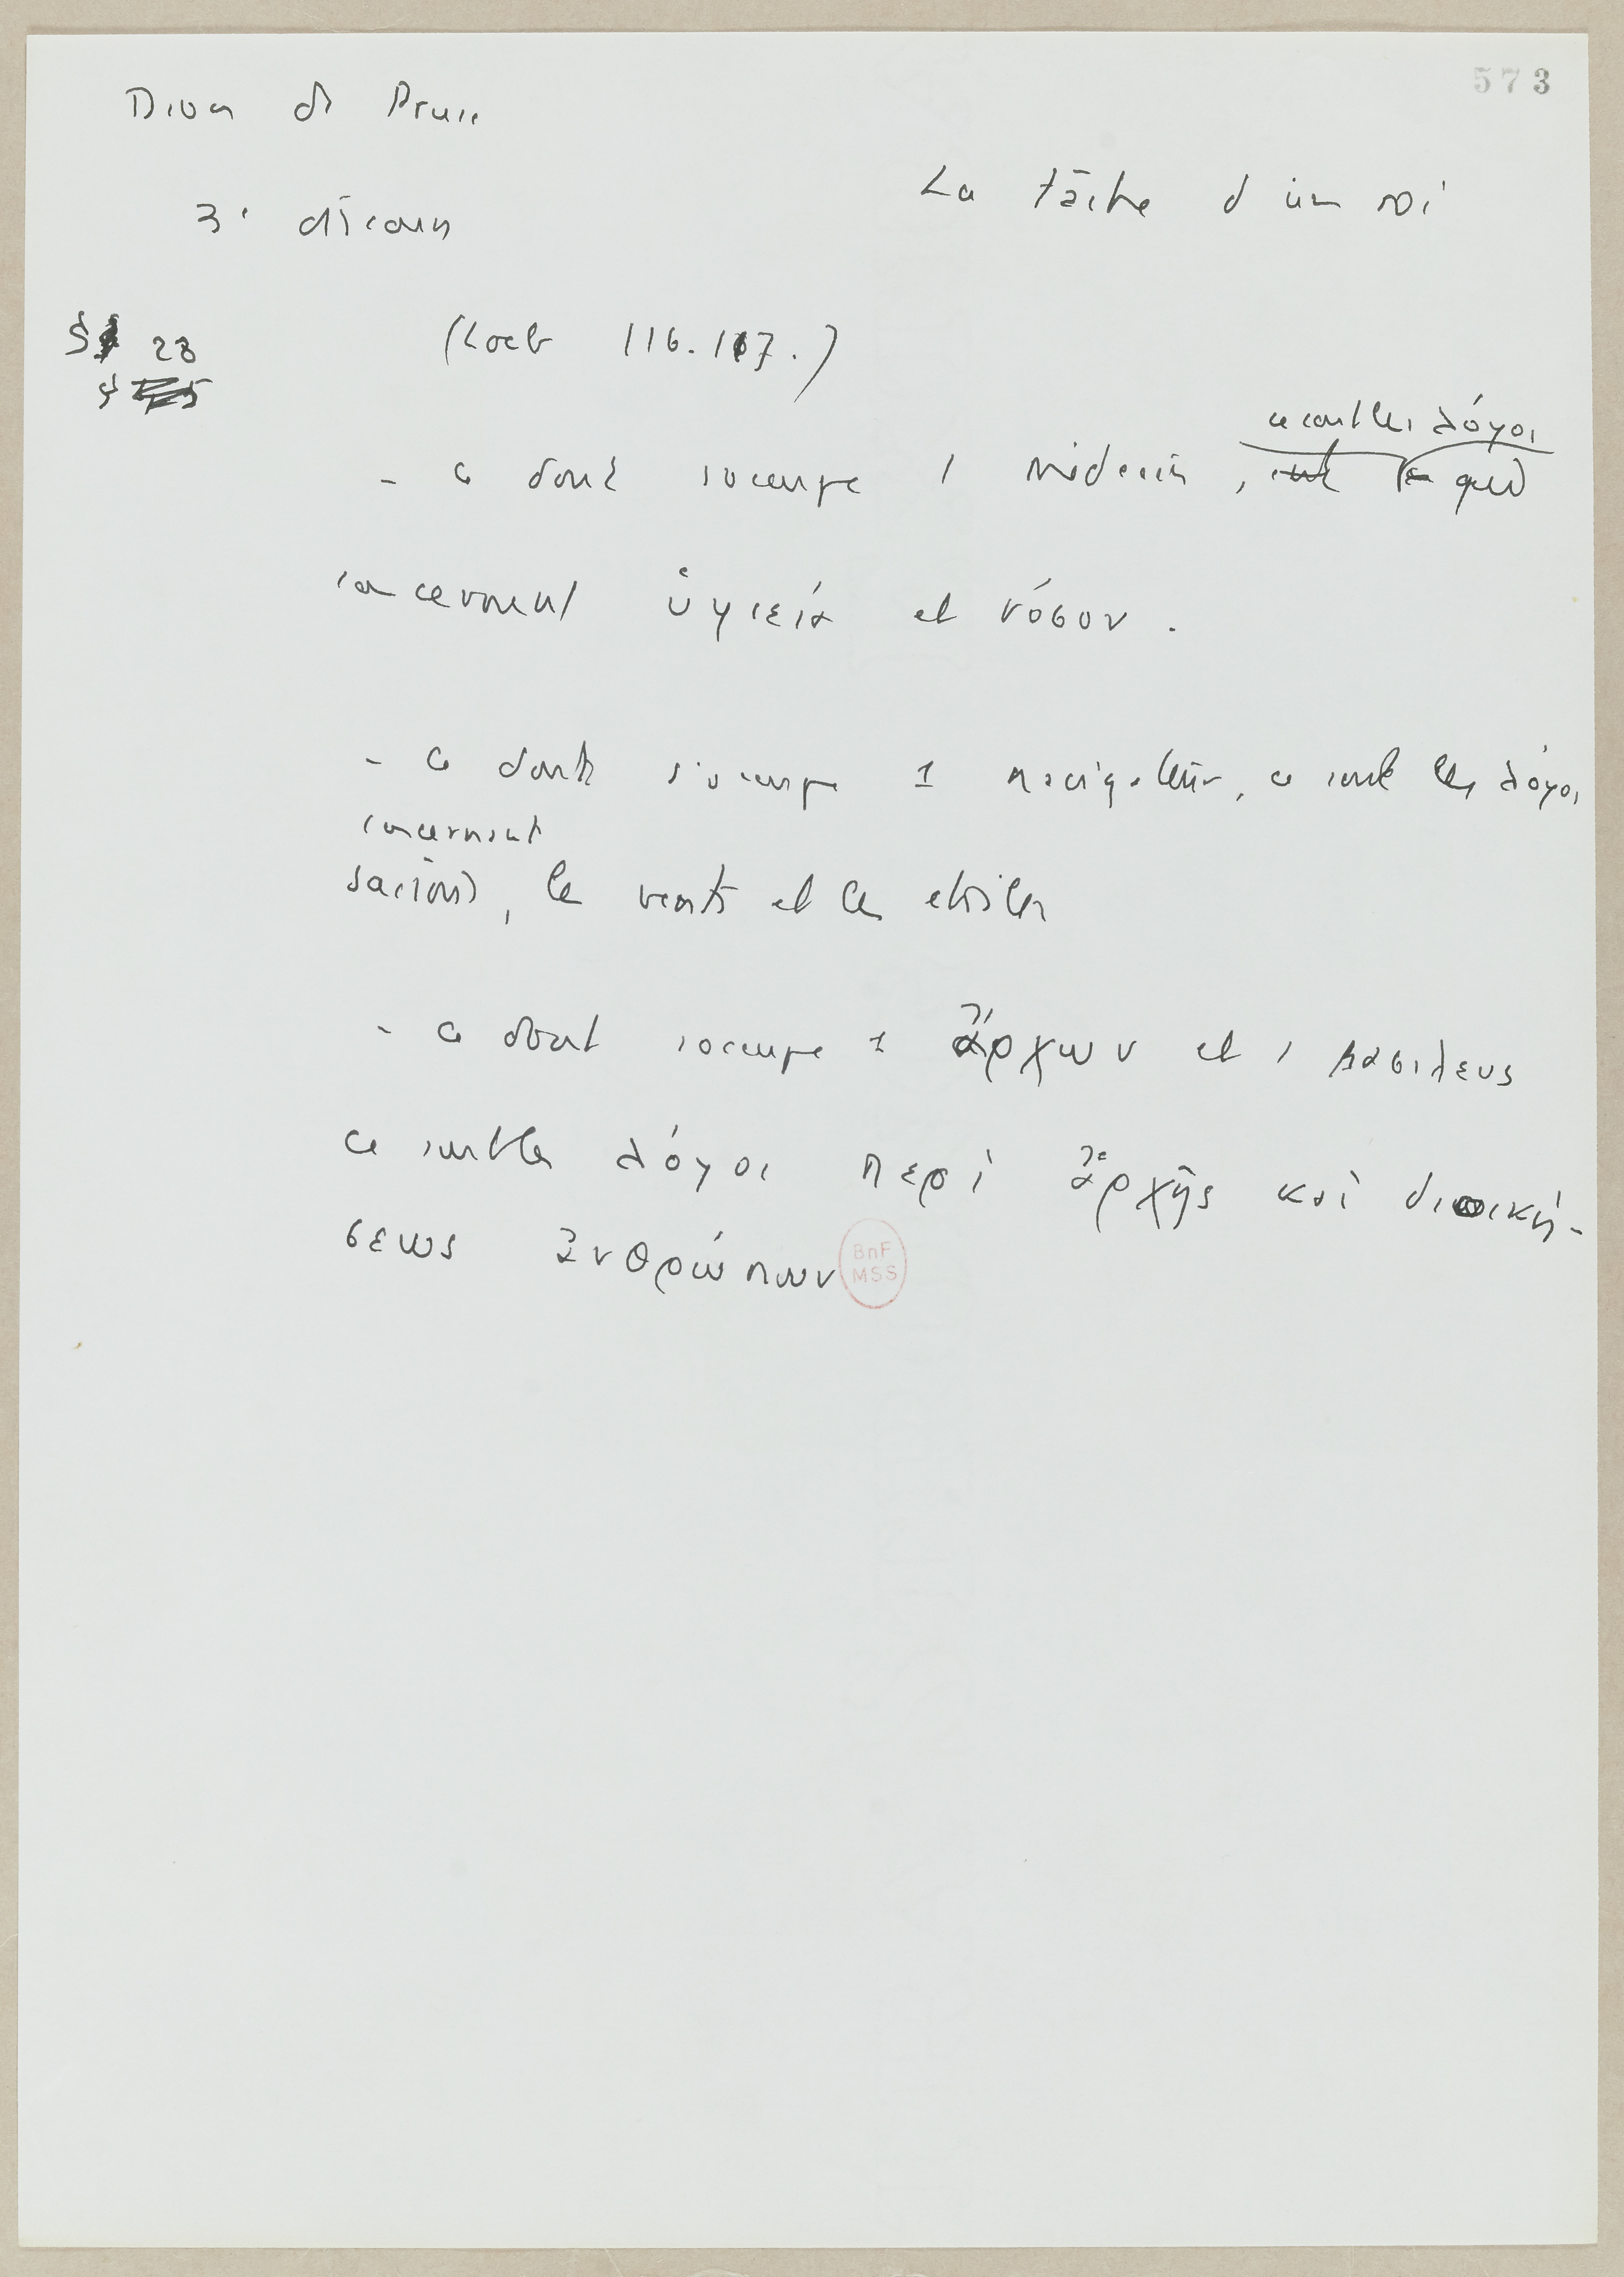 573
Dion de Pruse
La tâche d'un roi
3e discours
§ 28
(Loeb 116.117.)
ce sont les λόγοι
- ce dont s'occupe 1 médecin, qui
concernent ὑγιεία et νόσον.
- ce dont s'occupe 1 navigateur, ce sont les λόγοι
concernant
saisons, les vents et les etoiles
- ce dont s'occupe 1 ἄρχων et 1 βασιλευς
ce sont les λόγοι περὶ ἀρχῆς καὶ διοική-
σεως ἀνθρώπων
BnF
MSS